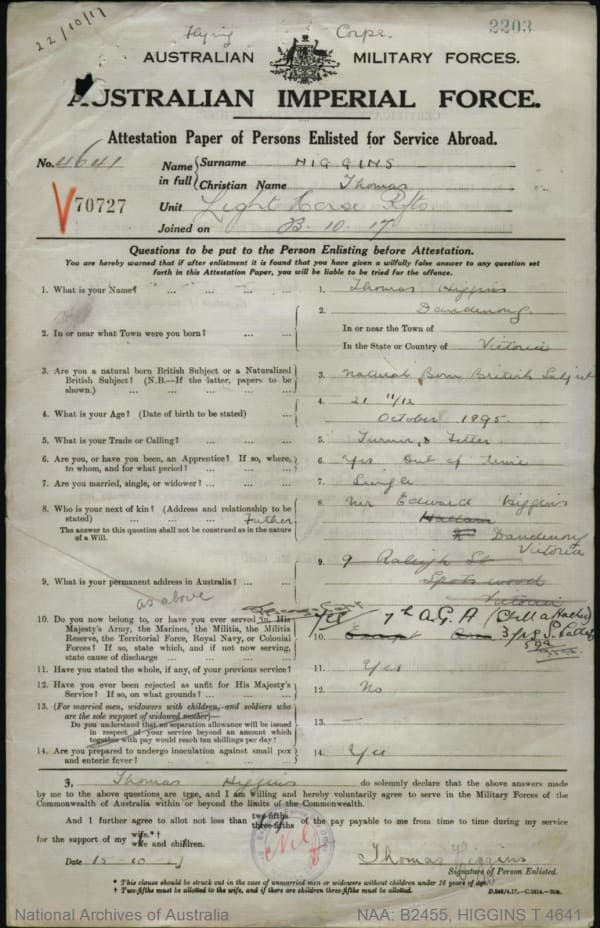 22/10/17
Flying Corps.
2203
AUSTRALIAN MILITARY FORCES.
AUSTRALIAN IMPERIAL FORCE.
Attestation Paper of Persons Enlisted for Service Abroad.
No. 4641 Name in full { Surname HIGGINS
Christian Name Thomas
V70727 Unit Light Horse Rfts
Joined on 10.17
Questions to be put to the Person Enlisting before Attestation.
You are hereby warned that if after enlistment it is found that you have given a wilfully false answer to any question set
forth in this Attestation Paper, you will be liable to be tried for the offence.
1. What is your Name? ... ... ... 1. Thomas Higgins
2. In or near what Town were you born? ... ... 2. Dandenong
In or near the Town of
In the State or Country of Victoria
3. Are you a natural born British Subject or a Naturalized
British Subject? (N.B.—If the latter, papers to be
shown.) ... ... ... ... 3. Natural Born British Subject
4. What is your Age? (Date of birth to be stated) ... 4. 21 11/12
October 1895.
5. What is your Trade or Calling? ... ... 5. Turner & Fitter
6. Are you, or have you been, an Apprentice? If so, where,
to whom, and for what period? ... ... 6. Yes Out of time
7. Are you married, single, or widower? ... ... 7. Single
8. Who is your next of kin? (Address and relationship to be
stated) ... ... ... Father 8. Mr Edward Higgins
The answer to this question shall not be construed as in the nature
of a Will. Hallam
Dandenong
Victoria
9. What is your permanent address in Australia? ... ... 9. 9 Raleigh St
Spotswood
Victoria
as above
10. Do you now belong to, or have you ever served in, His
Majesty's Army, the Marines, the Militia, the Militia
Reserve, the Territorial Force, Royal Navy, or Colonial
Forces? If so, state which, and if not now serving,
state cause of discharge ... ... 10. Yes 7th A.G.A
11. Have you stated the whole, if any, of your previous service? 11. Yes
12. Have you ever been rejected as unfit for His Majesty's
Service? If so, on what grounds? ... ... 12. No
13. (For married men, widowers with children, and soldiers who
are the sole support of widowed mother)—
Do you understand that no separation allowance will be issued
in respect of your service beyond an amount which
together with pay would reach ten shillings per day? ... 13. —
14. Are you prepared to undergo inoculation against small pox
and enteric fever? ... ... ... 14. Yes
I, Thomas Higgins do solemnly declare that the above answers made
by me to the above questions are true, and I am willing and hereby voluntarily agree to serve in the Military Forces of the
Commonwealth of Australia within or beyond the limits of the Commonwealth.
And I further agree to allot not less than two-fifths three-fifths of the pay payable to me from time to time during my service
for the support of my wife.*† wife and children.
Nil
Date 15-10-17 Thomas Higgins
Signature of Person Enlisted.
* This clause should be struck out in the case of unmarried men or widowers without children under 16 years of age.
† Two-fifths must be allotted to the wife, and if there are children three-fifths must be allotted.
National Archives of Australia NAA: B2455, HIGGINS T 4641